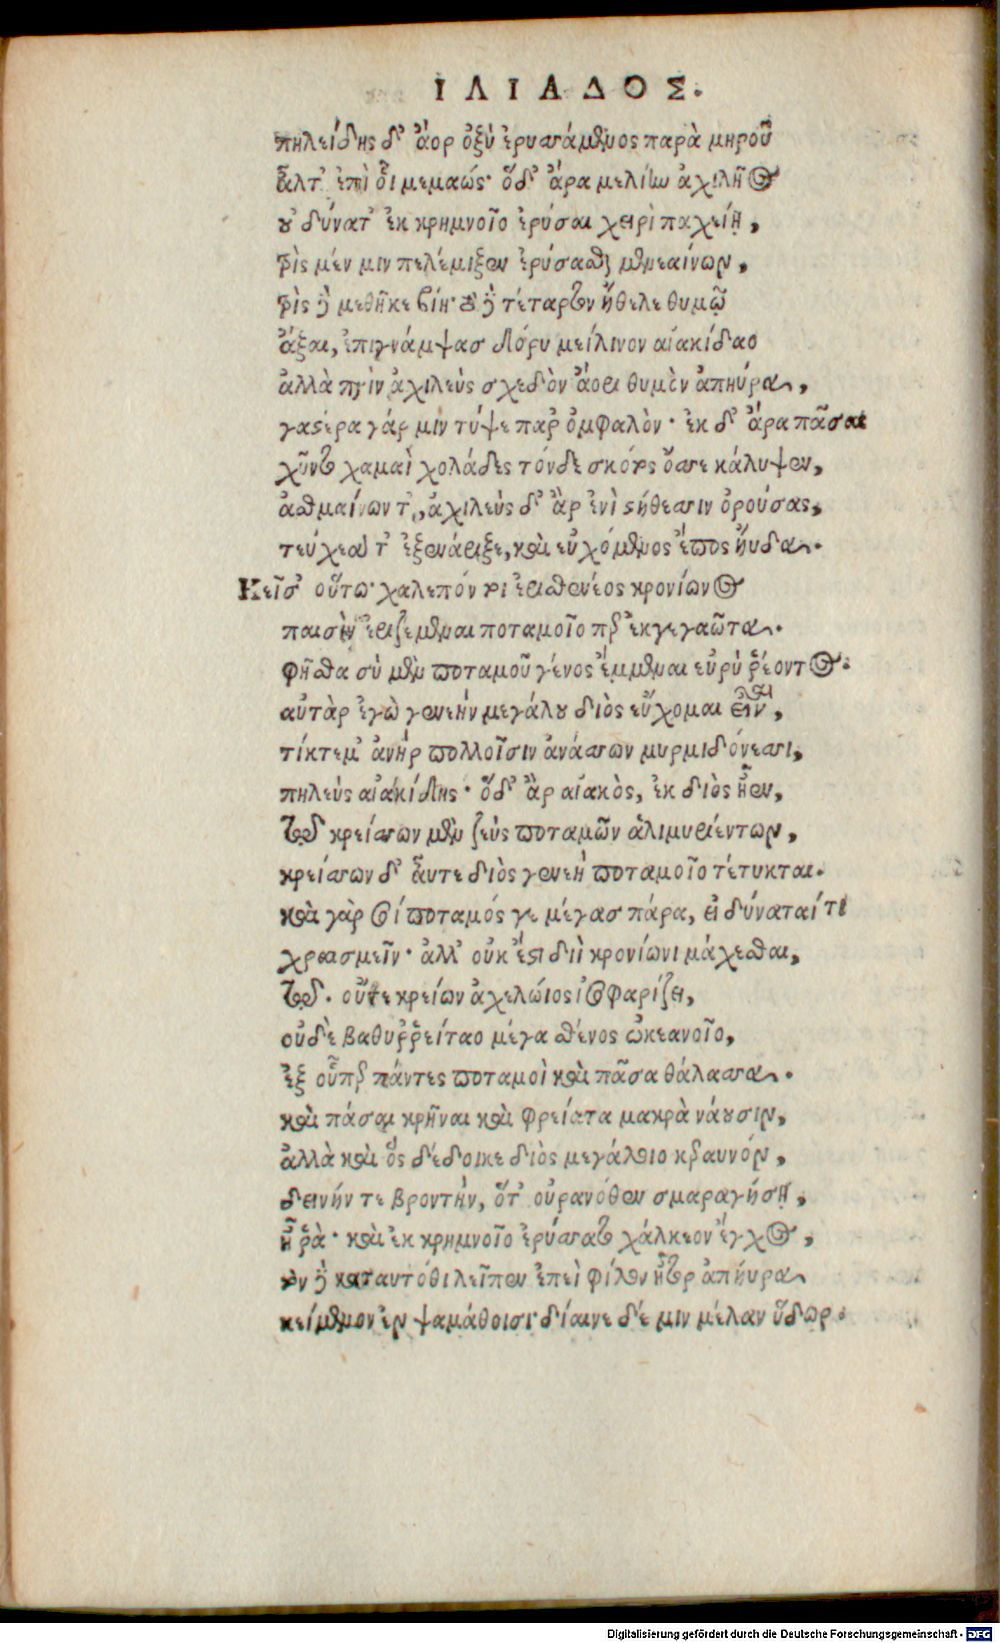 ΙΛΙΑΔΟΣ.
πηλείδης δ' ἄορ ὀξὺ ἐρυσσάμενος παρὰ μηροῦ
ἆλτ' ἐπὶ οἷ μεμαώς· ὅδ' ἄρα μελίην ἀχιλῆος
οὐ δύνατ' ἐκ κρημνοῖο ἐρύσαι χειρὶ παχείῃ,
τρὶς μέν μιν πελέμιξεν ἐρύσασθαι μενεαίνων,
τρὶς δὲ μεθῆκε βίη· τὸ δὲ τέταρτον ἤθελε θυμῷ
ἆξαι, ἐπιγνάμψας δόρυ μείλινον αἰακίδαο
ἀλλὰ πρὶν ἀχιλεὺς σχεδὸν ἄορι θυμὸν ἀπηύρα,
γαστέρα γάρ μιν τύψε παρ' ὀμφαλὸν· ἐκ δ' ἄρα πᾶσαι
χῦντο χαμαὶ χολάδες τόνδε σκότος ὄσσε κάλυψεν,
ἀσθμαίνοντ', ἀχιλεὺς δ' ἂρ ἐνὶ στήθεσσιν ὀρούσας,
τεύχεά τ' ἐξενάριξε, καὶ εὐχόμενος ἔπος ἤυδα.
Κεῖσ' οὕτω· χαλεπόν τοι ἐρισθενέος κρονίωνος
παισὶν ἐριζέμεναι ποταμοῖο περ ἐκγεγαῶτα.
φῆσθα σὺ μὲν ποταμοῦ γένος ἔμμεναι εὐρὺ ῥέοντος.
αὐτὰρ ἐγὼ γενεὴν μεγάλου διὸς εὔχομαι εἶναι,
τίκτε μ' ἀνὴρ πολλοῖσιν ἀνάσσων μυρμιδόνεσσι,
πηλεὺς αἰακίδης· ὅδ' ἂρ αἰακὸς, ἐκ διὸς ἦεν,
τῷ κρείσσων μὲν ζεὺς ποταμῶν ἁλιμυρηέντων,
κρείσσων δ' αὖτε διὸς γενεὴ ποταμοῖο τέτυκται.
καὶ γὰρ σοί ποταμός γε μέγας πάρα, εἰ δύναταί τι
χραισμεῖν· ἀλλ' οὐκ ἔστι διὶ κρονίωνι μάχεσθαι,
τῷ. οὔτε κρείων ἀχελώιος ἰσοφαρίζει,
οὐδὲ βαθυῤῥείταο μέγα σθένος ὠκεανοῖο,
ἐξ οὗπερ πάντες ποταμοὶ καὶ πᾶσα θάλασσα.
καὶ πᾶσαι κρῆναι καὶ φρείατα μακρὰ νάουσιν,
ἀλλὰ καὶ ὃς δέδοικε διὸς μεγάλοιο κεραυνόν,
δεινήν τε βροντὴν, ὅτ' οὐρανόθεν σμαραγήσῃ,
ἦ ῥὰ· καὶ ἐκ κρημνοῖο ἐρύσσατο χάλκεον ἔγχος,
τὸν δὲ κατ αυτόθι λεῖπεν ἐπεὶ φίλον ἦτορ ἀπήυρα
κείμενον ἐν ψαμάθοισι· δίαινε δέ μιν μέλαν ὕδωρ.
Digitalisierung gefördert durch die Deutsche Forschungsgemeinschaft - DFG